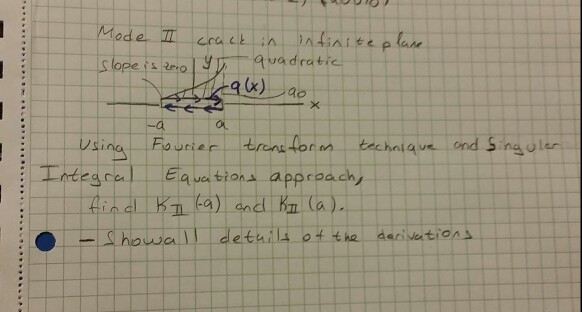 Mode II crack in infinite plane
Slope is zero y quadratic
q(x) q0
x
-a a
Using Fourier transform technique and Singuler
Integral Equations approach,
find KII (-a) and KII (a).
- Show all details of the derivations